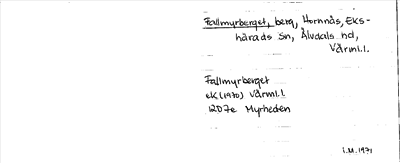 Fallmyrberget, berg, Hornnäs, Eks-
härads sn, Älvdals hd,
Värml.l.
Fallmyrberget
eK(1970) Värml.l.
12D7e Myrheden
i.M. 1971